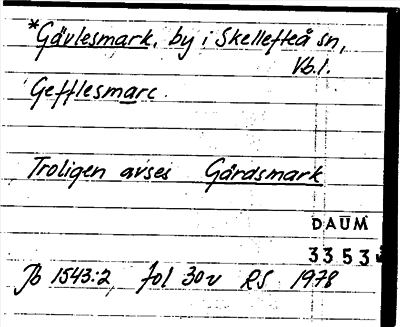 *Gävlesmark, by i Skellefteå sn,
Vb.l.
Gefflesmarc.
Troligen avses Gärdsmark
DAUM
3353
Jb 1543:2, fol 30v RS 1978